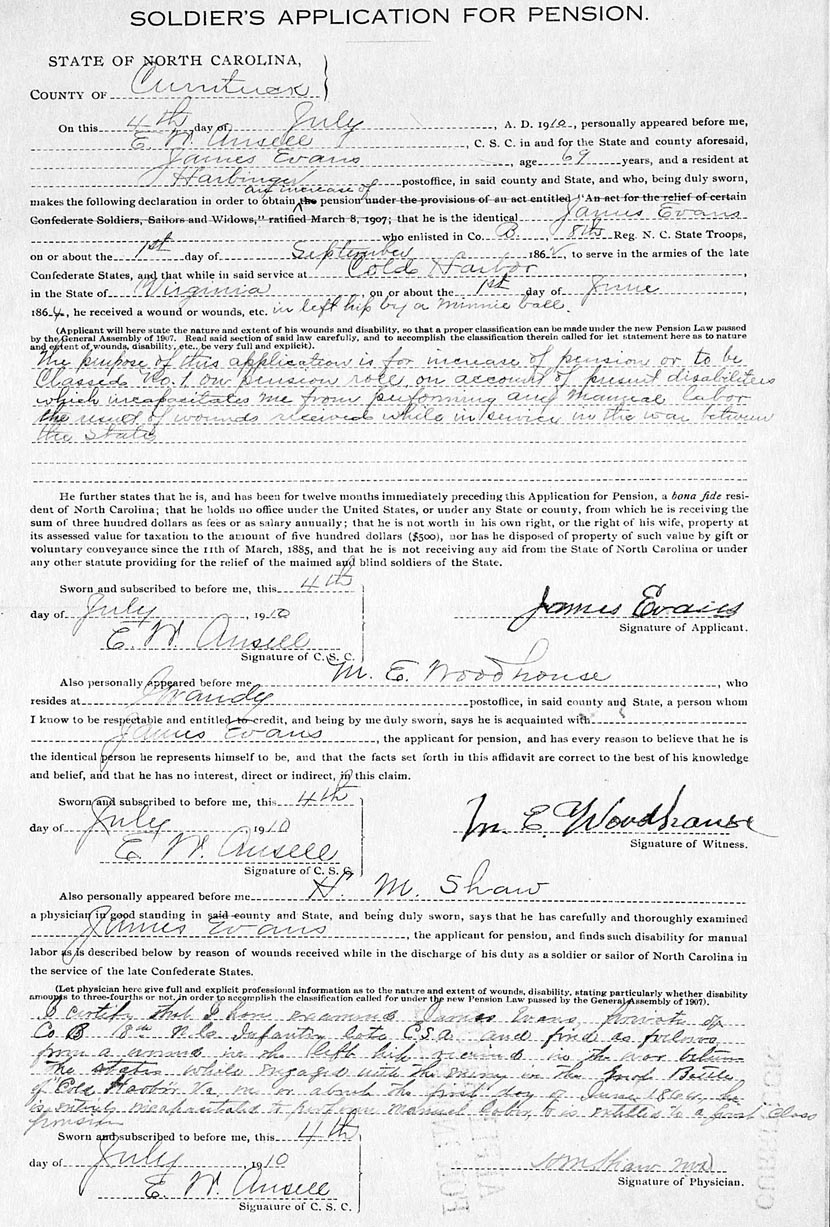 SOLDIER'S APPLICATION FOR PENSION.
STATE OF NORTH CAROLINA,
COUNTY OF Currituck
On this 4th day of July, A. D. 1910, personally appeared before me,
E. W. Ansell, C. S. C. in and for the State and county aforesaid,
James Evans, age 69 years, and a resident at
Harbinger postoffice, in said county and State, and who, being duly sworn,
an increase of
makes the following declaration in order to obtain the pension under the provisions of an act entitled "An act for the relief of certain
Confederate Soldiers, Sailors and Widows," ratified March 8, 1907; that he is the identical James Evans
who enlisted in Co. B, 8th Reg. N. C. State Troops,
on or about the 1st day of September 186, to serve in the armies of the late
Confederate States, and that while in said service at Cold Harbor,
in the State of Virginia, on or about the 1st day of June,
1864, he received a wound or wounds, etc. in left hip by a minnie ball.
(Applicant will here state the nature and extent of his wounds and disability, so that a proper classification can be made under the new Pension Law passed
by the General Assembly of 1907. Read said section of said law carefully, and to accomplish the classification therein called for let statement here as to nature
and extent of wounds, disability, etc., be very full and explicit).
The purpose of this application is for increase of pension or to be
Classed No. 1 on pension role, on account of present disabilities
which incapacitates me from performing any manual labor
the result of wounds received while in service in the war between
the States
He further states that he is, and has been for twelve months immediately preceding this Application for Pension, a bona fide resi-
dent of North Carolina; that he holds no office under the United States, or under any State or county, from which he is receiving the
sum of three hundred dollars as fees or as salary annually; that he is not worth in his own right, or the right of his wife, property at
its assessed value for taxation to the amount of five hundred dollars ($500), nor has he disposed of property of such value by gift or
voluntary conveyance since the 11th of March, 1885, and that he is not receiving any aid from the State of North Carolina or under
any other statute providing for the relief of the maimed and blind soldiers of the State.
Sworn and subscribed to before me, this 4th
day of July, 1910
James Evans
Signature of Applicant.
E. W. Ansell
Signature of C. S. C.
Also personally appeared before me M. E. Woodhouse, who
resides at Grandy postoffice, in said county and State, a person whom
I know to be respectable and entitled to credit, and being by me duly sworn, says he is acquainted with
James Evans, the applicant for pension, and has every reason to believe that he is
the identical person he represents himself to be, and that the facts set forth in this affidavit are correct to the best of his knowledge
and belief, and that he has no interest, direct or indirect, in this claim.
Sworn and subscribed to before me, this 4th
day of July 1910
M. E. Woodhouse
Signature of Witness.
E. W. Ansell
Signature of C. S. C.
Also personally appeared before me H. M. Shaw
a physician in good standing in said county and State, and being duly sworn, says that he has carefully and thoroughly examined
James Evans, the applicant for pension, and finds such disability for manual
labor as is described below by reason of wounds received while in the discharge of his duty as a soldier or sailor of North Carolina in
the service of the late Confederate States.
(Let physician here give full and explicit professional information as to the nature and extent of wounds, disability, stating particularly whether disability
amounts to three-fourths or not, in order to accomplish the classification called for under the new Pension Law passed by the General Assembly of 1907).
I certify that I have examined James Evans, private of
Co B 8th N.C. Infantry late C.S.A. and find as follows
from a wound in the left hip received in the war between
the states while engaged with the enemy in the Battle
of Cold Harbor Va. on or about the first day of June 1864, he
is entirely incapacitated to perform manual labor, & is entitled to a first Class
pension
Sworn and subscribed to before me, this 4th
day of July 1910
Shaw MD
Signature of Physician.
E. W. Ansell
Signature of C. S. C.